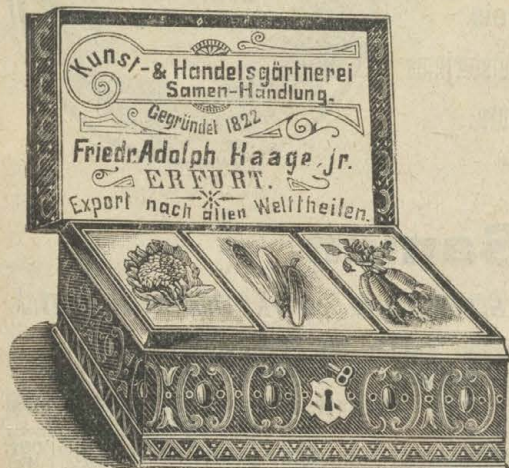 Kunst- & Handelsgärtnerei
Samen-Handlung.
Gegründet 1822
Friedr. Adolph Haage, jr.
ERFURT.
Export nach allen Welttheilen.